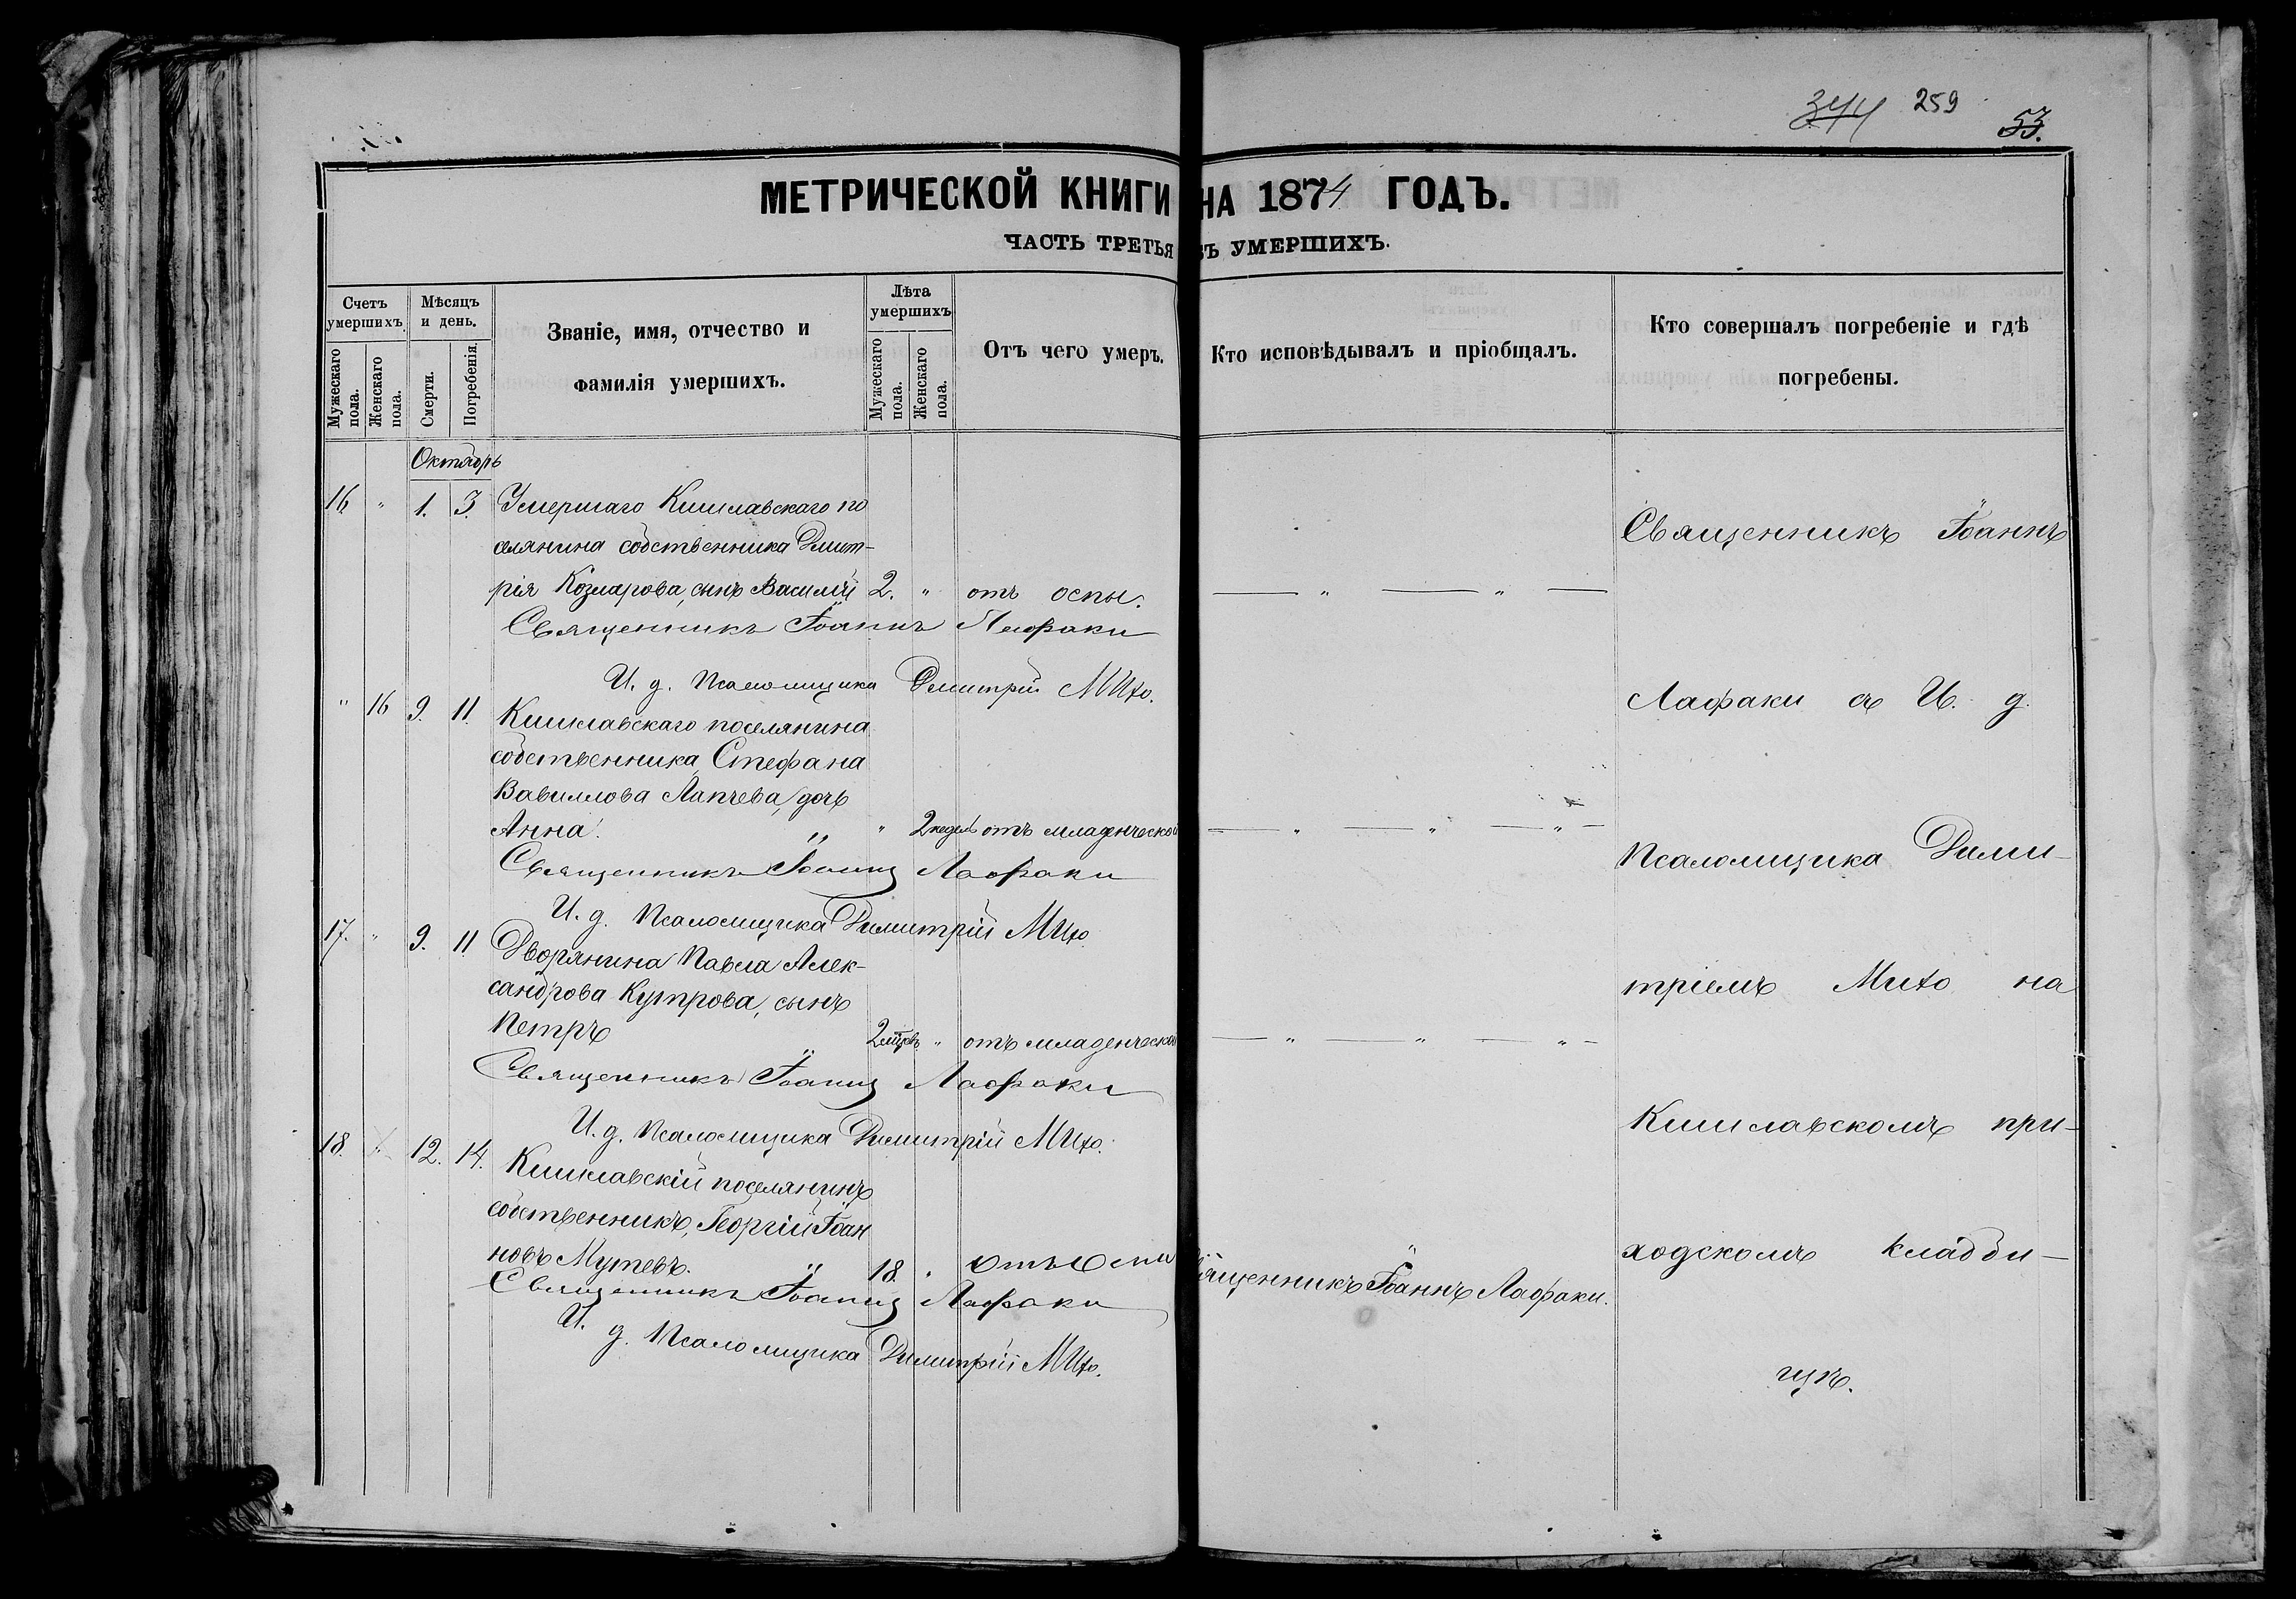 344 259
53.
МЕТРИЧЕСКОЙ КНИГИ НА 1874 ГОДЪ.
ЧАСТЬ ТРЕТЬЯ УМЕРШИХЪ.
Счетъ умершихъ.
Мужескаго пола.
Женскаго пола.
Мѣсяцъ и день.
Смерти.
Погребенія.
Званіе, имя, отчество и
фамилія умершихъ.
Лѣта умершихъ
Мужескаго пола.
Женскаго пола.
Отъ чего умеръ.
Кто исповѣдывалъ и пріобщалъ.
Кто совершалъ погребеніе и гдѣ
погребены.
Октябрь
16 " 1. 3. Умершаго Кишлавскаго по
селянина собственника Дмит-
рія Козларова, сынъ Василій 2. " отъ оспы. — " — " —
Священникъ Іоаннъ Лафаки
И. д. Псаломщика Димитрій Михо.
" 16 9. 11. Кишлавскаго поселянина
собственника Стефана
Вавилова Лапчева, дочь
Анна. " 2 недѣль отъ младенческой — " — " — " —
Священникъ Іоаннъ Лафаки
И. д. Псаломщика Димитрій Михо
17. " 9. 11 Дворянина Павла Алек-
сандрова Купрова, сынъ
Петръ 2 мѣсц. " отъ младенческой — " — " — " —
Священникъ Іоаннъ Лафаки
И. д. Псаломщика Димитрій Михо.
18. " 12. 14. Кишлавскій поселянинъ
собственникъ, Георгій Іоан
новъ Мутевъ. 18. " отъ оспы Священникъ Іоаннъ Лафаки.
Священникъ Іоаннъ Лафаки
И. д. Псаломщика Димитрій Михо.
Священникъ Іоаннъ
Лафаки съ И. д.
Псаломщика Дими-
тріемъ Михо на
Кишлавскомъ при-
ходскомъ кладби-
щѣ.